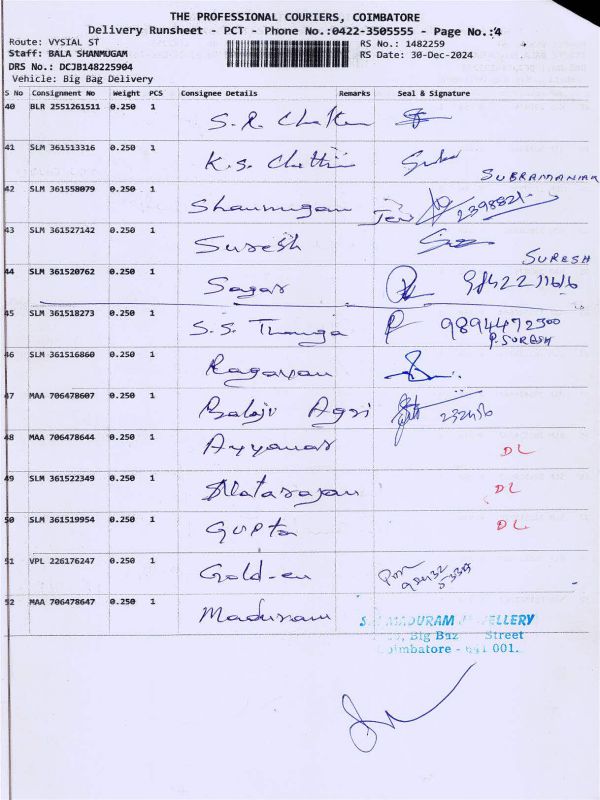 THE PROFESSIONAL COURIERS, COIMBATORE
Delivery Runsheet - PCT - Phone No.:0422-3505555 - Page No.:4
Route: VYSIAL ST
RS No.: 1482259
Staff: BALA SHANMUGAM
RS Date: 30-Dec-2024
DRS No.: DCJB148225904
Vehicle: Big Bag Delivery
S No Consignment No Weight PCS Consignee Details Remarks Seal & Signature
40 BLR 2551261511 0.250 1
41 SLM 361513316 0.250 1 K.S. Chettii
SUBRAMANIAN
42 SLM 361558079 0.250 1 Shanmugam 2398821
43 SLM 361527142 0.250 1 Suresh
SURESH
44 SLM 361520762 0.250 1 Sagar
45 SLM 361518273 0.250 1 S.S. Thanga 9894472500
P. SURESH
46 SLM 361516860 0.250 1 Ragavan
47 MAA 706478607 0.250 1 Balaji Agri
48 MAA 706478644 0.250 1 Ayyanar DL
49 SLM 361522349 0.250 1 Natarajan DL
50 SLM 361519954 0.250 1 Gupta DL
51 VPL 226176247 0.250 1 Gold-en
52 MAA 706478647 0.250 1 Maduram
MADURAM
Big Baz Street
Coimbatore - 641 001.